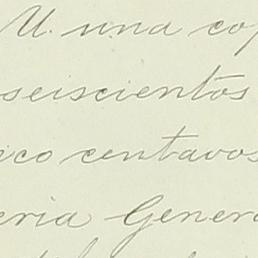 U. una cop
seiscientos
nco centavos
eria Genera